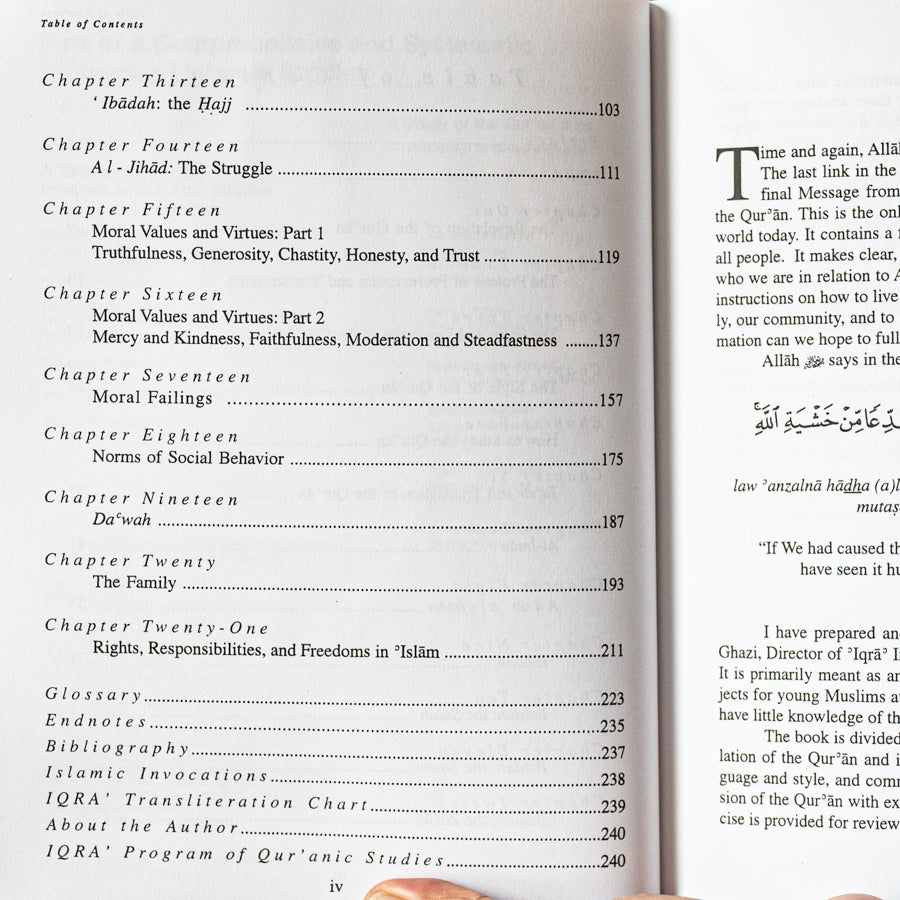 Table of Contents
Chapter Thirteen
ʻIbādah: the Ḥajj ........................................103
Chapter Fourteen
Al-Jihād: The Struggle ........................................111
Chapter Fifteen
Moral Values and Virtues: Part 1
Truthfulness, Generosity, Chastity, Honesty, and Trust ........................................119
Chapter Sixteen
Moral Values and Virtues: Part 2
Mercy and Kindness, Faithfulness, Moderation and Steadfastness ........137
Chapter Seventeen
Moral Failings ........................................157
Chapter Eighteen
Norms of Social Behavior ........................................175
Chapter Nineteen
Daʿwah ........................................187
Chapter Twenty
The Family ........................................193
Chapter Twenty-One
Rights, Responsibilities, and Freedoms in ʾIslām ........................................211
Glossary........................................223
Endnotes........................................235
Bibliography........................................237
Islamic Invocations........................................238
IQRA' Transliteration Chart........................................239
About the Author........................................240
IQRA' Program of Qur'anic Studies........................................240
iv
Time and again, Allā
The last link in the
final Message from
the Qurʾān. This is the onl
world today. It contains a
all people. It makes clear,
who we are in relation to A
instructions on how to live
ly, our community, and to
mation can we hope to full
Allāh ﷻ says in the
مِّنْ خَشْيَةِ ٱللَّهِ
law ʾanzalnā hādha (a)l
mutaṣ
“If We had caused th
have seen it hu
I have prepared an
Ghazi, Director of ʾIqrāʾ I
It is primarily meant as an
jects for young Muslims a
have little knowledge of th
The book is divided
lation of the Qurʾān and i
guage and style, and com
sion of the Qurʾān with ex
cise is provided for review